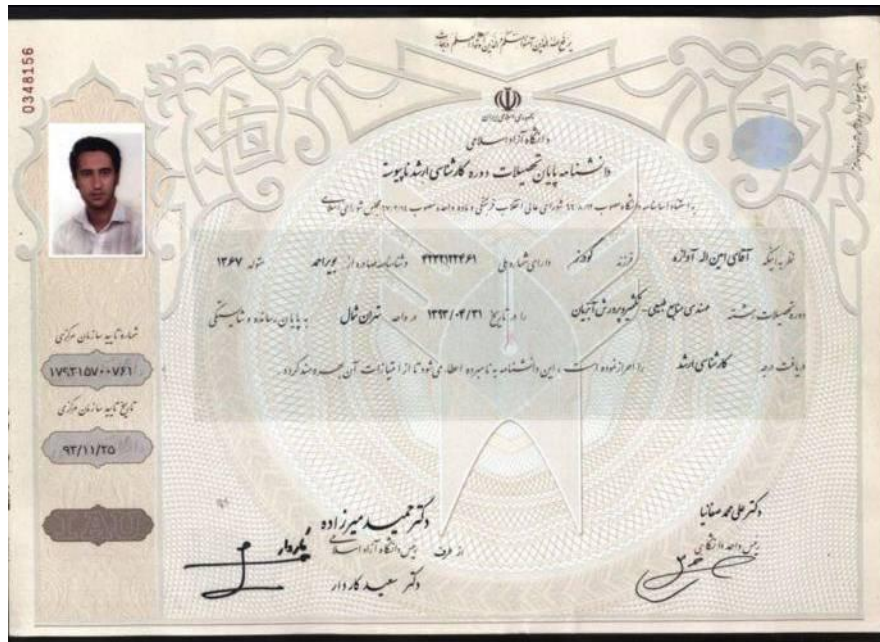 0348156
جمهوری اسلامی ایران
دانشگاه آزاد اسلامی
دانشنامه پایان تحصیلات دوره کارشناسی ارشد ناپیوسته
به استناد اساسنامه دانشگاه مصوب شورای عالی انقلاب فرهنگی و ماده واحده مصوب مجلس شورای اسلامی
نظر به اینکه آقای امین اله آوازه فرزند گودرز دارای شماره ملی ۴۲۳۲۱۲۲۴۶۱ و شناسنامه صادره از بویراحمد متولد ۱۳۶۷
دوره تحصیلات رشته مهندسی منابع طبیعی - تکثیر و پرورش آبزیان را در تاریخ ۱۳۹۳/۰۴/۳۱ در واحد تهران شمال به پایان رسانده و شایستگی
دریافت درجه کارشناسی ارشد را احراز نموده است ، این دانشنامه به نامبرده اعطا می شود تا از امتیازات آن بهره مند گردد.
شماره تایید سازمان مرکزی
۱۷۹۳۱۵۷۰۰۷۶۱
تاریخ تایید سازمان مرکزی
۹۳/۱۱/۲۵
I.A.U
دکتر علی محمد صفانیا
رئیس واحد دانشگاهی
دکتر حمید میرزاده
از طرف رئیس دانشگاه آزاد اسلامی
دکتر سعید کاردار